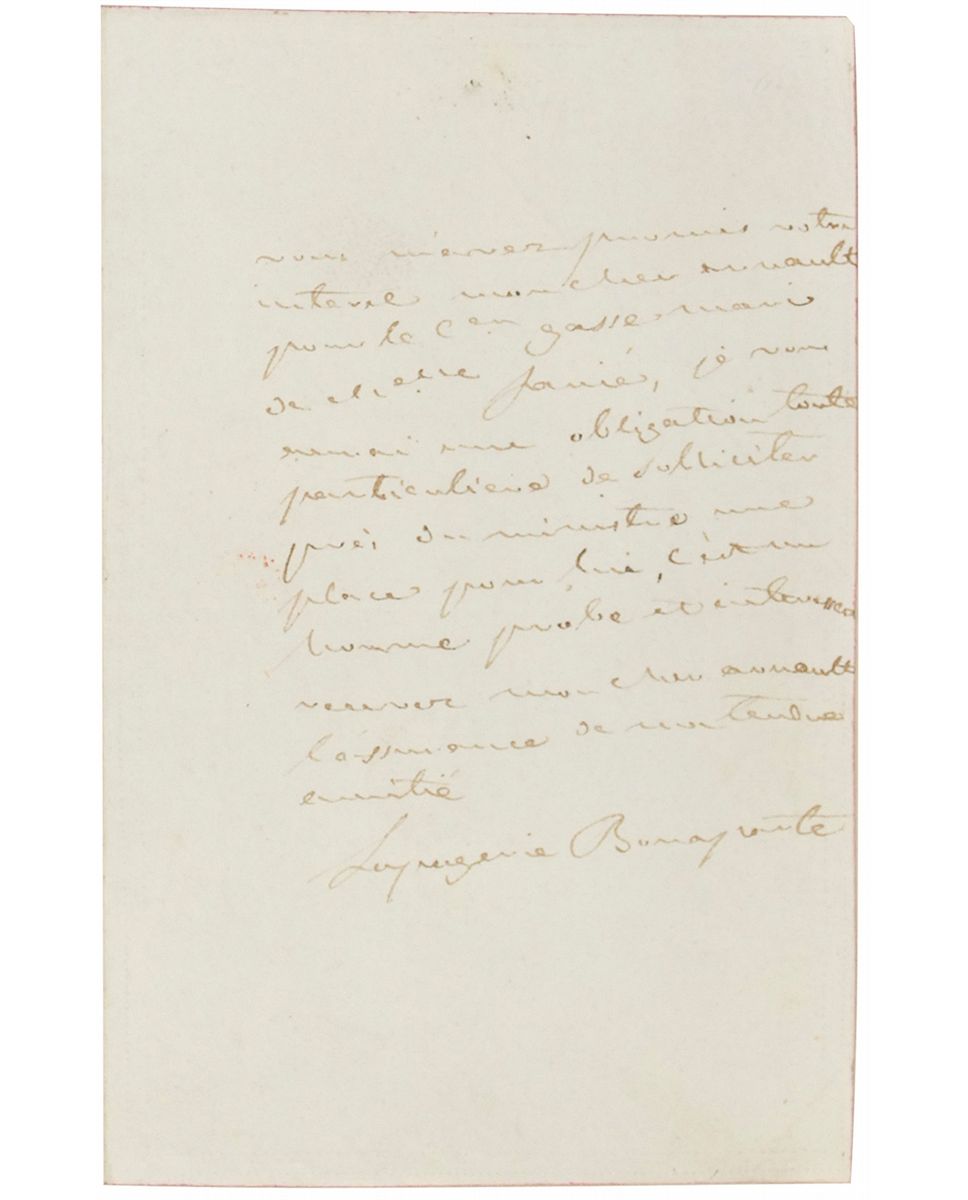 vous m'avez promis votre
interet mon cher arnault
pour le C.en gasse mari
de je vous
aurai une obligation toute
particuliere de solliciter
près du ministre une
place pour lui, c'est un
homme probe et interessa
recevez mon cher arnault
l'assurance de mon tendre
amitié
Lapagerie Bonaparte